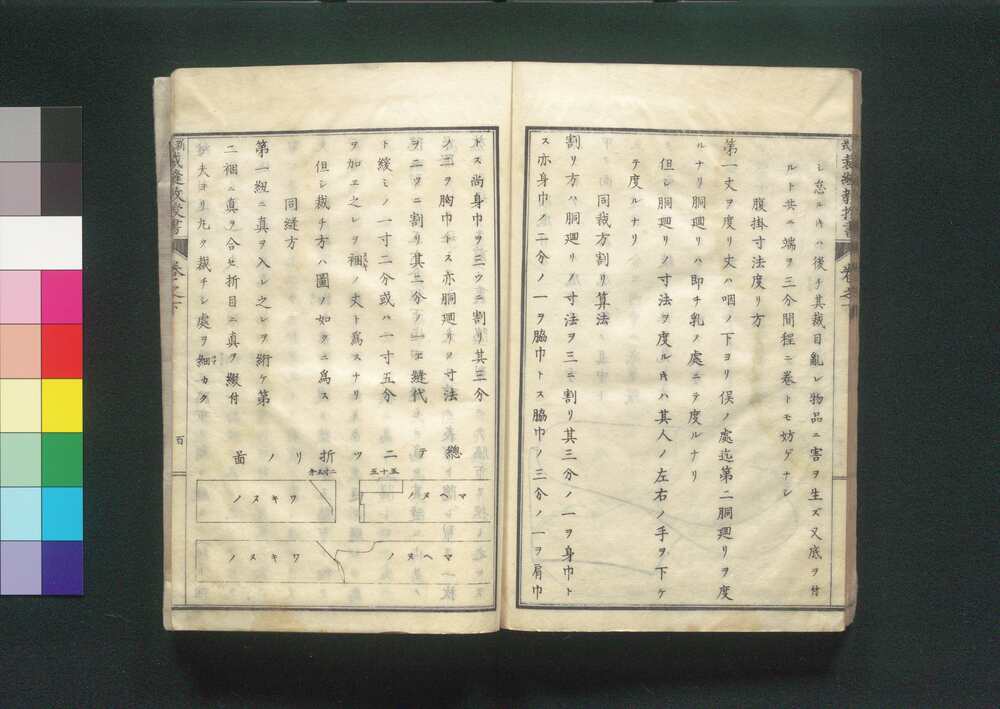 シ怠ルキハ後チ其裁目亂レ物品ニ害ヲ生ズ又底ヲ付
ルト共ニ端ヲ三分間程ニ巻トモ妨ゲナシ
腹掛寸法度リ方
第一丈ヲ度リ丈ハ咽ノ下ヨリ俣ノ處迄第二胴廻リヲ度
ルナリ胴廻リハ即チ乳ノ處ニテ度ルナリ
但シ胴廻リノ寸法ヲ度ル𪜈ハ其人ノ左右ノ手ヲ下ケ
テ度ルナリ
同裁方割リ算法
割リ方ハ胴廻リノ寸法ヲ三ニ割リ其三分ノ一ヲ身巾ト
ス亦身巾ノ二分ノ一ヲ脇巾トス脇巾ノ三分ノ一ヲ肩巾
トス尚身巾ヲ三ウニ割リ其三分
ノ二ヲ胸巾トス亦胴廻リノ寸法
ヲ二ウニ割リ其二分ノ一エ縫代
ト緩ミノ一寸二分或ハ一寸五分
ヲ加エ之レヲ袽ノ丈ト爲スナリ
但シ裁チ方ハ圖ノ如クニ爲ス
同縫方
第一紐ニ真ヲ入レ之レヲ絎ケ第
二袽ニ真ヲ合セ折目ニ真ヲ綴付
夫ヨリ九ク裁チシ處ヲ細カク
總テ二ツ折リノ啚
マヘヌノ
ワキヌノ
マヘヌノ
ワキヌノ
裁縫教授書
卷之下
百